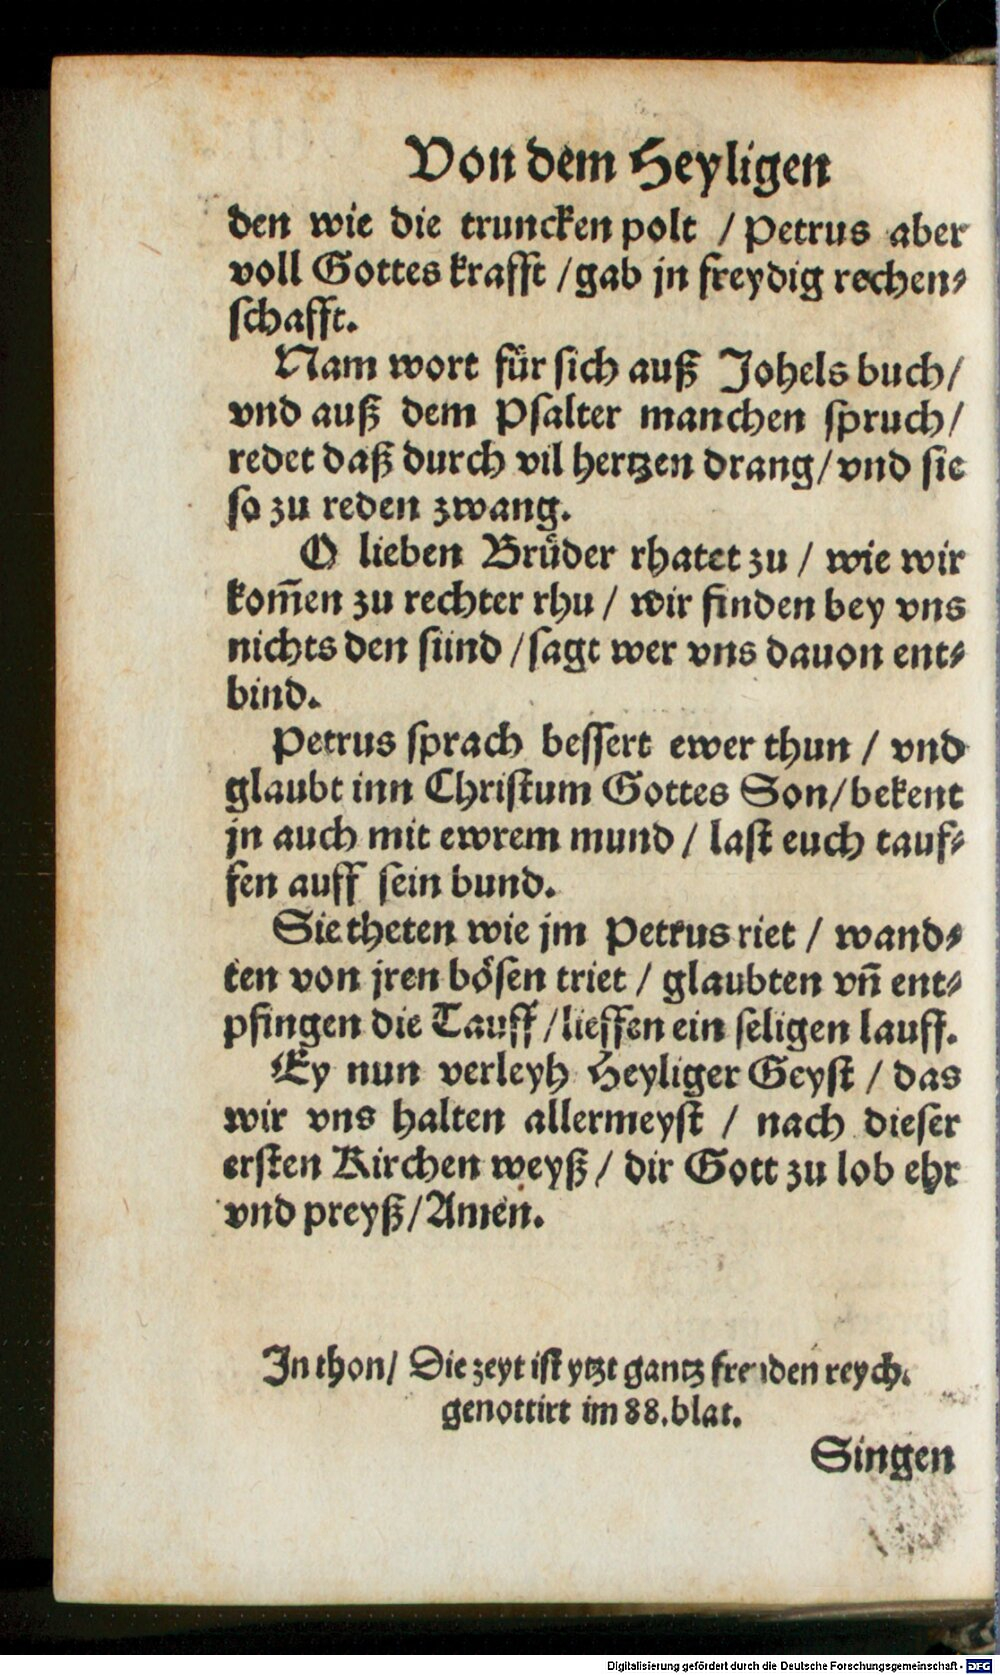 Von dem Heyligen
den wie die truncken polt / Petrus aber
voll Gottes krafft / gab jn freydig rechen⸗
schafft.
Nam wort für sich auß Johels buch /
vnd auß dem Psalter manchen spruch /
redet daß durch vil hertzen drang / vnd sie
so zu reden zwang.
O lieben Brüder rhatet zu / wie wir
kom̄en zu rechter rhu / wir finden bey vns
nichts den sünd / sagt wer vns dauon ent⸗
bind.
Petrus sprach bessert ewer thun / vnd
glaubt inn Christum Gottes Son / bekent
jn auch mit ewrem mund / last euch tauf⸗
fen auff sein bund.
Sie theten wie jm Petrus riet / wand⸗
ten von jren bösen triet / glaubten vn̄ ent⸗
pfingen die Tauff / lieffen ein seligen lauff.
Ey nun verleyh Heyliger Geyst / das
wir vns halten allermeyst / nach dieser
ersten Kirchen weyß / dir Gott zu lob ehr
vnd preyß / Amen.
In thon / Die zeyt ist ytzt gantz freuden reych.
genottirt im 88. blat.
Singen
Digitalisierung gefördert durch die Deutsche Forschungsgemeinschaft - DFG